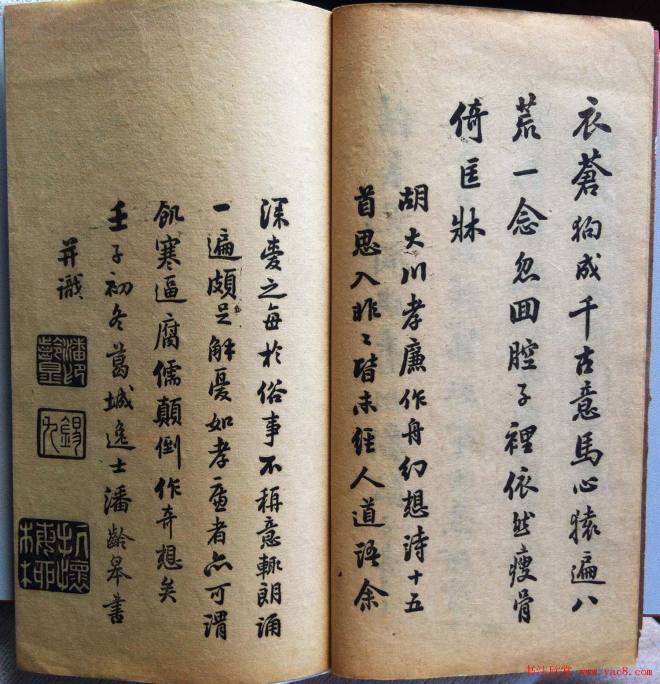 衣蒼狗成千古意馬心猿遍八
荒一念忽囬腔子裡依然瘦骨
倚匡牀
胡大川孝廉作舟幻想詩十五
首思入非〻皆未經人道語余
深愛之每於俗事不稱意輒朗誦
一遍頗足解憂如孝廉者亦可謂
飢寒逼腐儒顛倒作奇想矣
壬子初冬葛城逸士潘齡皋書
并識
潘印齡皋
錫九
书法欣赏 www.yac8.com